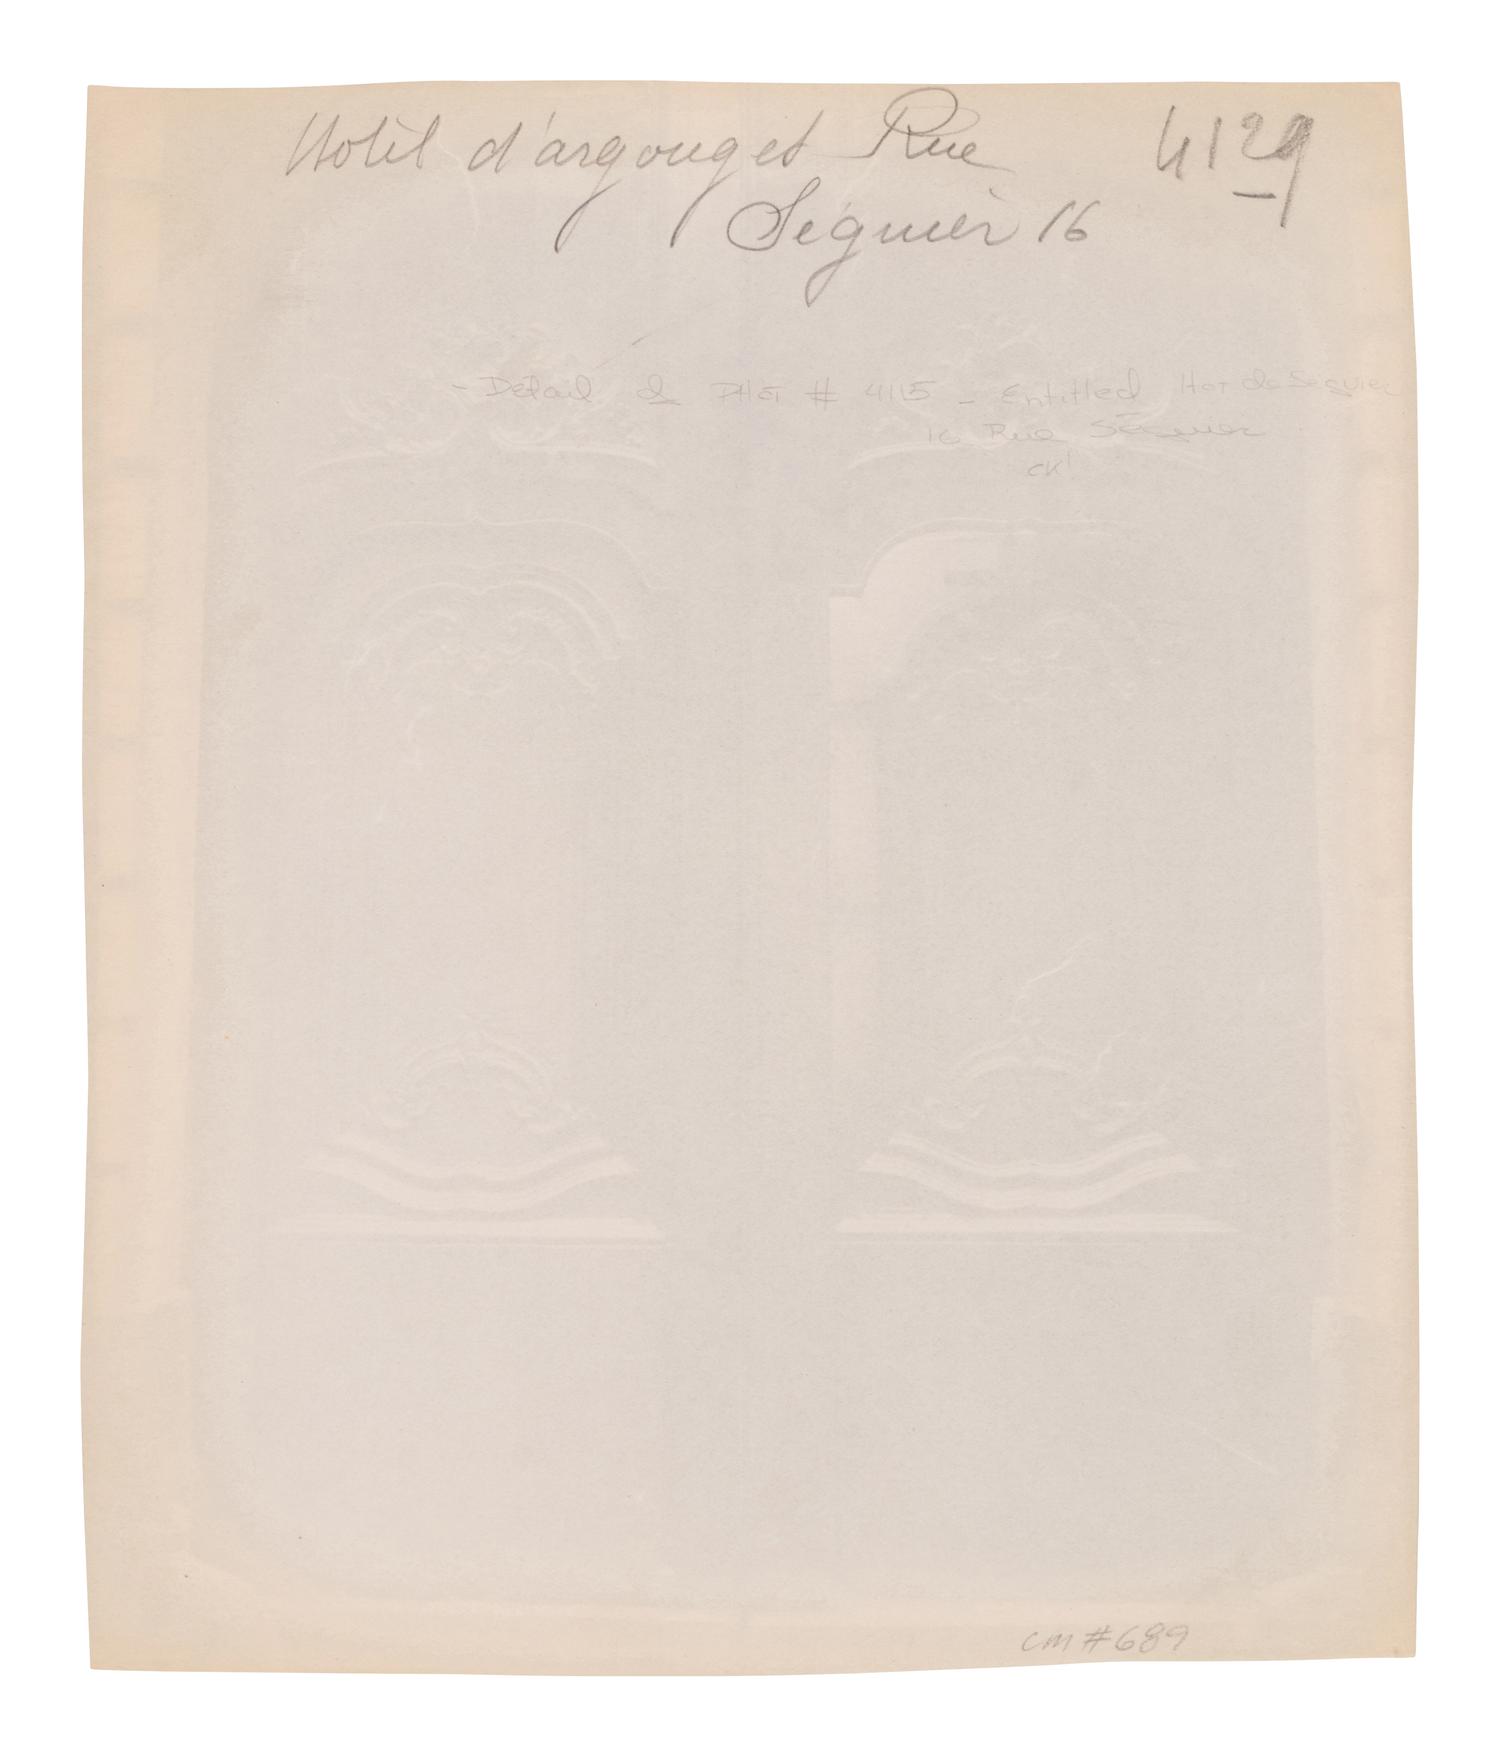 Hotel d'argouges Rue 4129
Séguier 16
- Detail of PHOT # 4115 - Entitled Hot de Seguier
16 Rue Séguier
CK'
cm #689